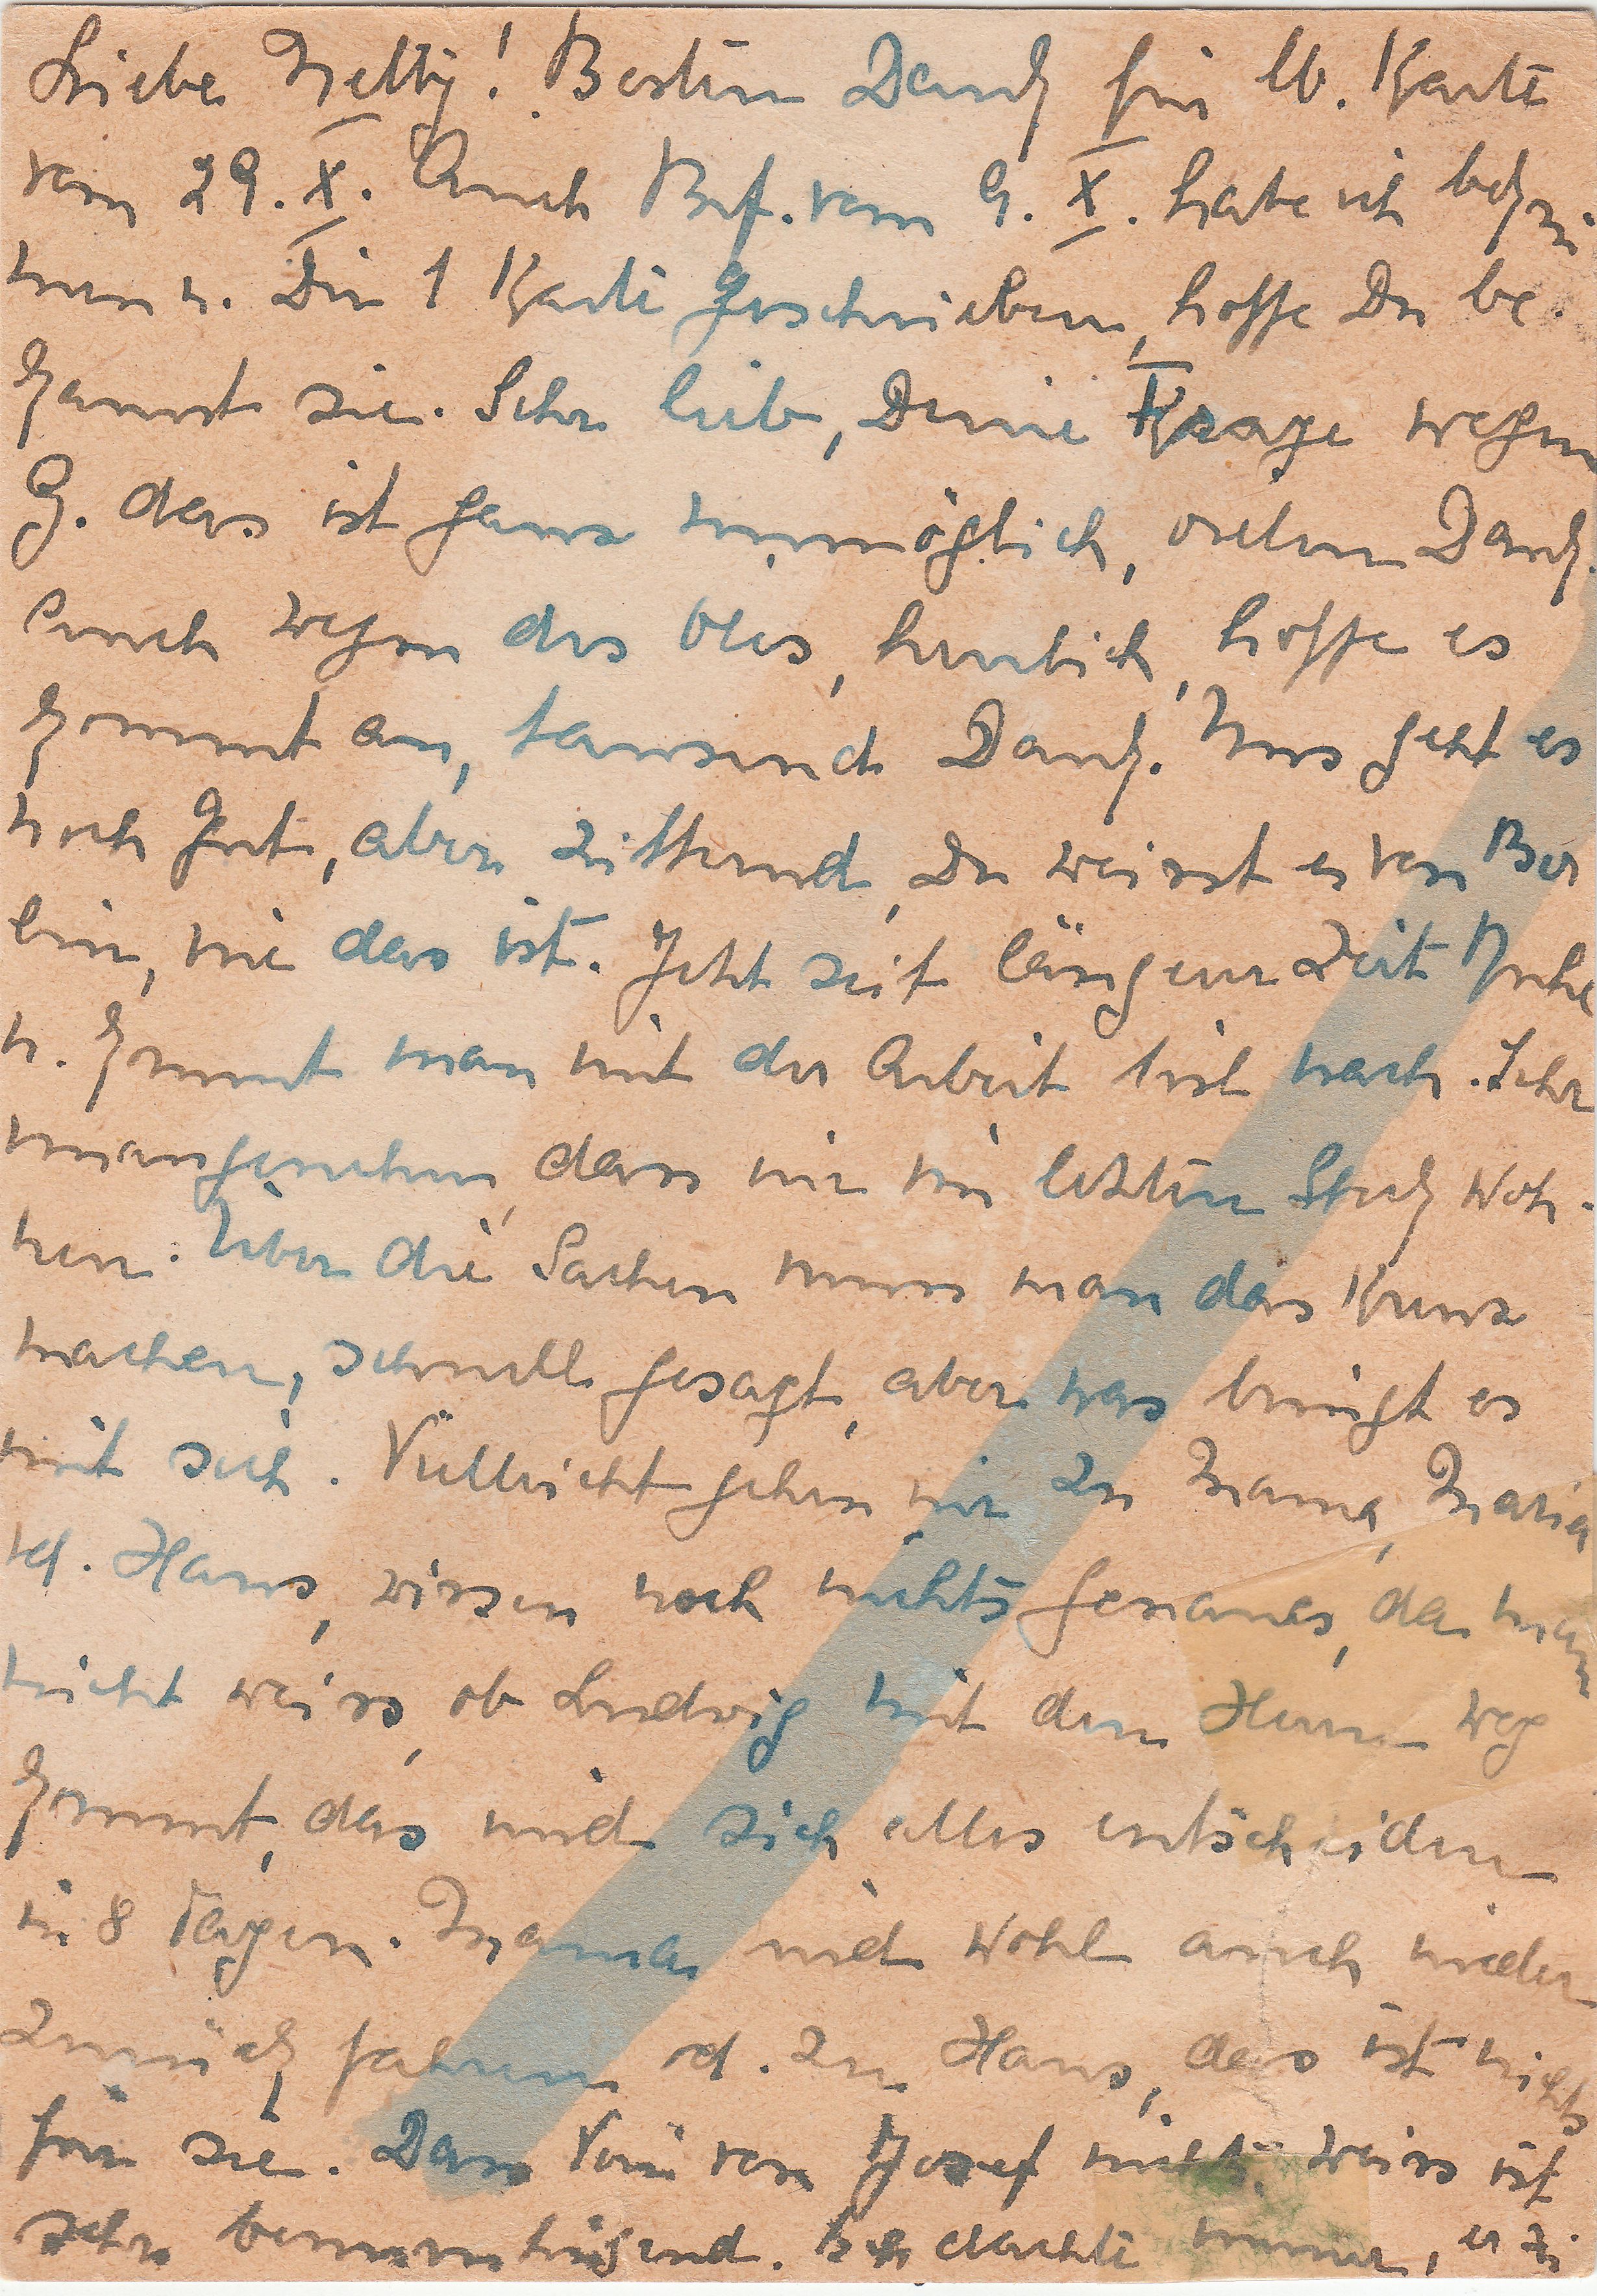 Liebe Netty! Besten Dank für lb. Karte
vom 29. X. Auch Brf. vom 9. X. habe ich bek
men u. Dir 1 Karte geschrieben, hoffe Du be-
kamst sie. Sehr lieb, Deine Frage wegen
G. das ist ganz unmöglich, vielen Dank.
Auch wegen des herzlich, hoffe es
kommt an, tausend Dank. Uns geht es
noch gut, aber zitternd, Du weisst es von Ber
lin, wie das ist. Jetzt seit längerer Zeit Ruhe
u. kommt man mit der Arbeit bisl nach. Sehr
unangenehm, dass wir im letzten Stock woh-
nen. Über die Sachen muss man das Kreuz
machen, schnell gesagt, aber was bringt es
mit sich. Vielleicht gehen wir zu Mama, Maria
od. Hans, wissen noch nichts genaues, da man
nicht weiss, ob Ludwig mit den Herren weg
kommt, das wird sich alles entscheiden
in 8 Tagen. Mama wird wohl auch wieder
zurück fahren od. zu Hans, das ist nichts
für sie. Dass von Josef nichts weiss ist
sehr beunruhigend. Ich dachte immer, er